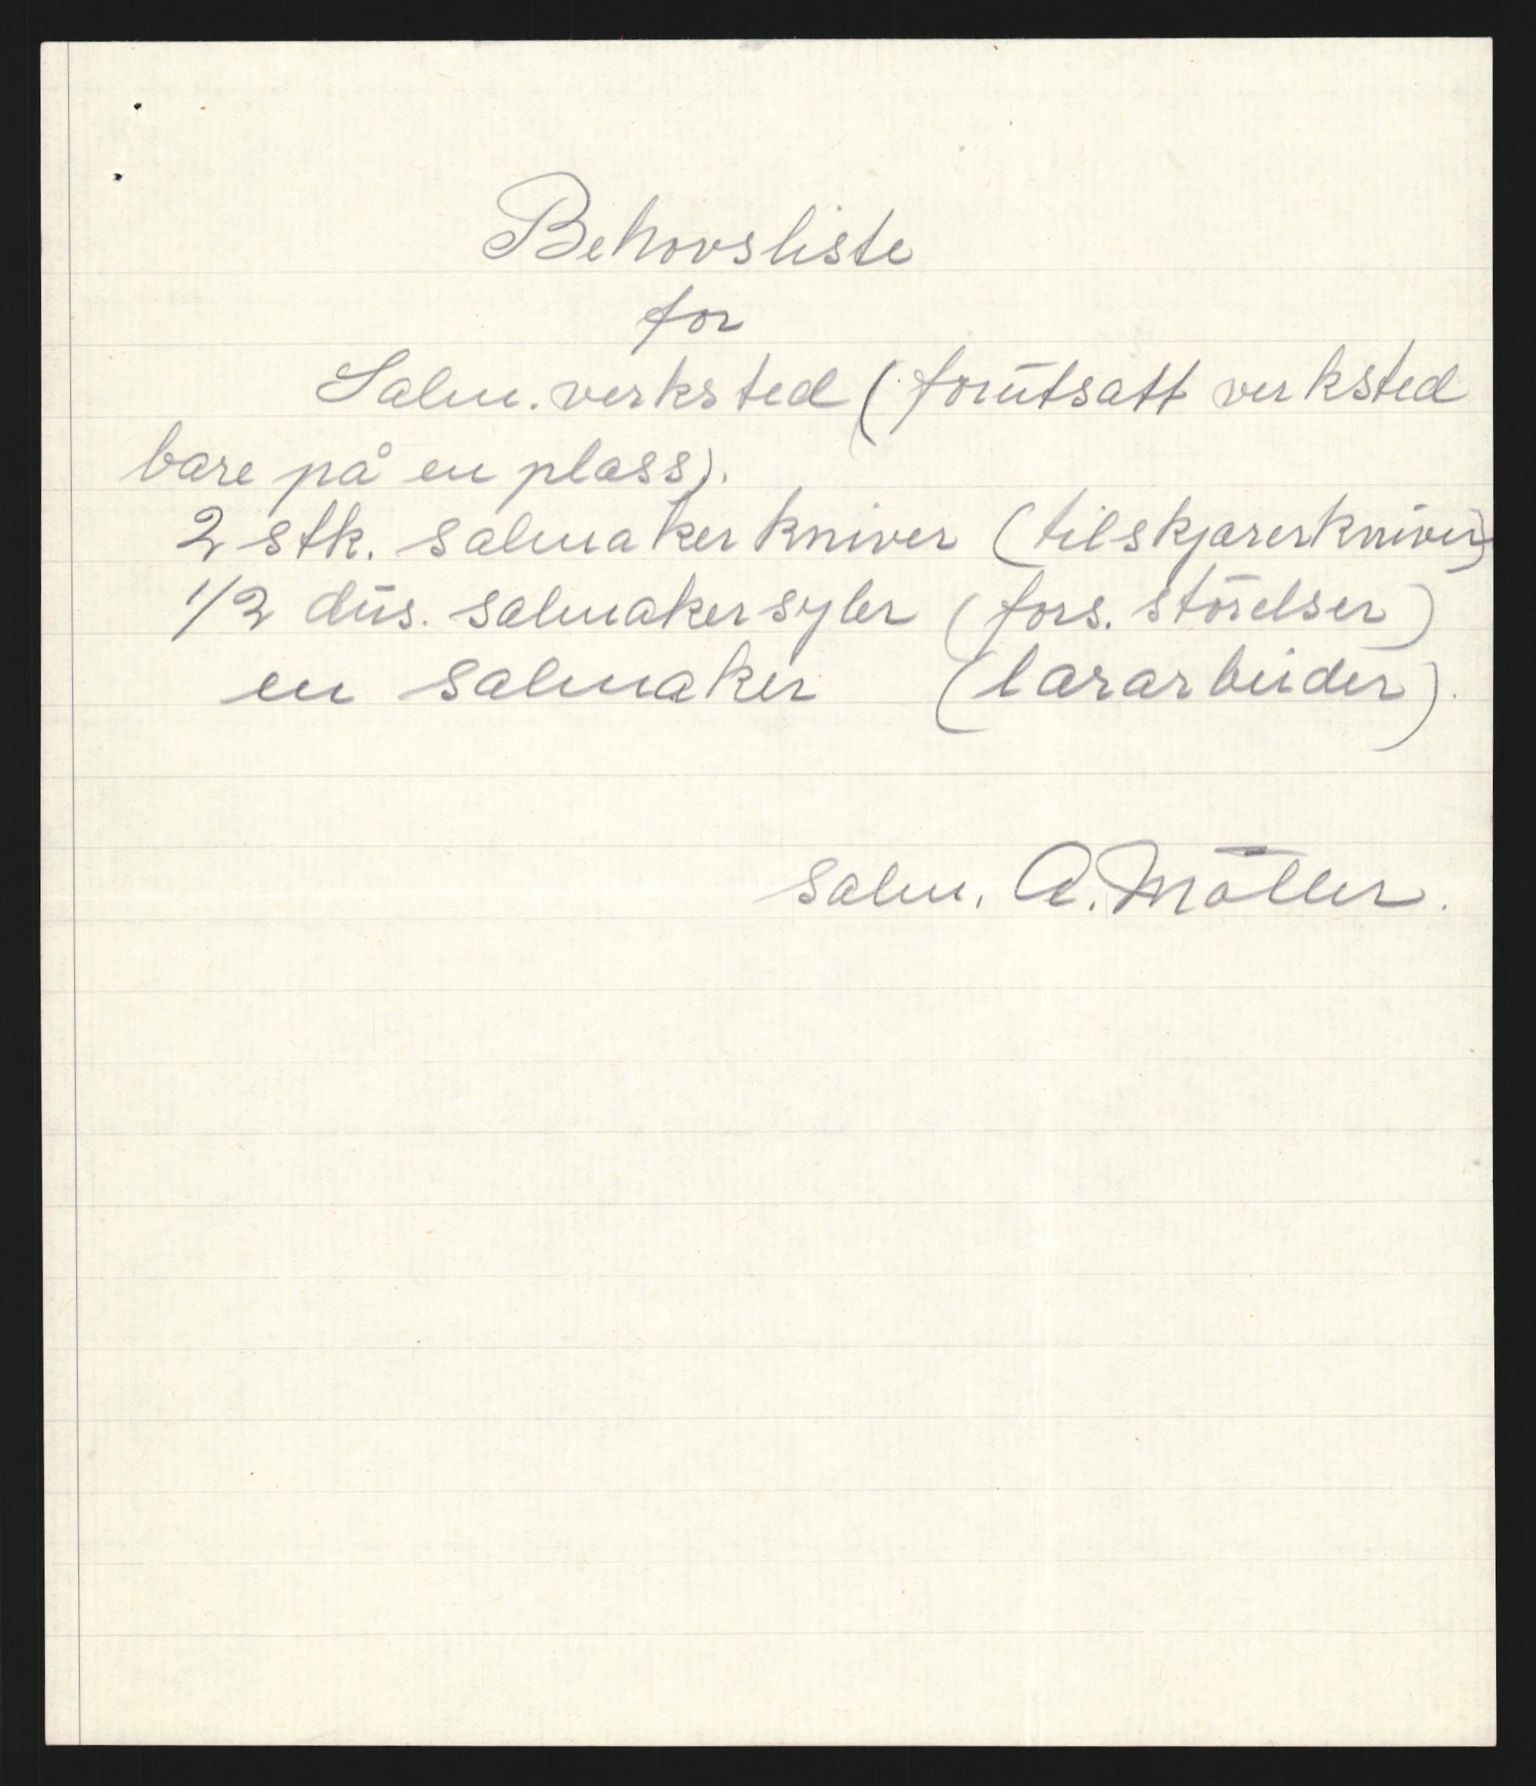 Behovsliste
for
Salm. verksted (forutsatt verksted
bare på en plass).
2 stk. salmakerkniver (tilskjarerkniver)
1/2 dus. salmakersyler (fors. störelser)
en salmaker (lararbeider).
Salm. A. Möller.